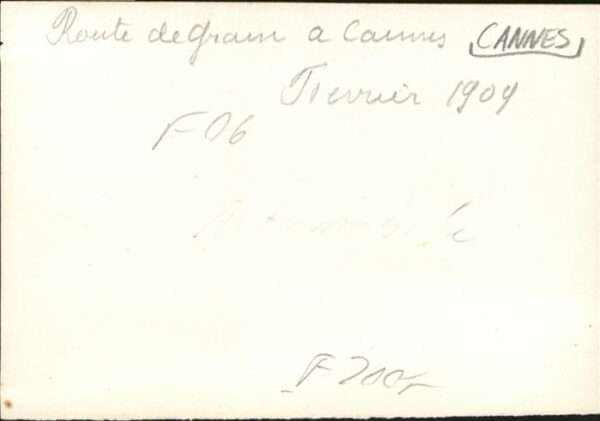 Route de Grasse a Cannes CANNES
Fevrier 1909
F 06
F 200F